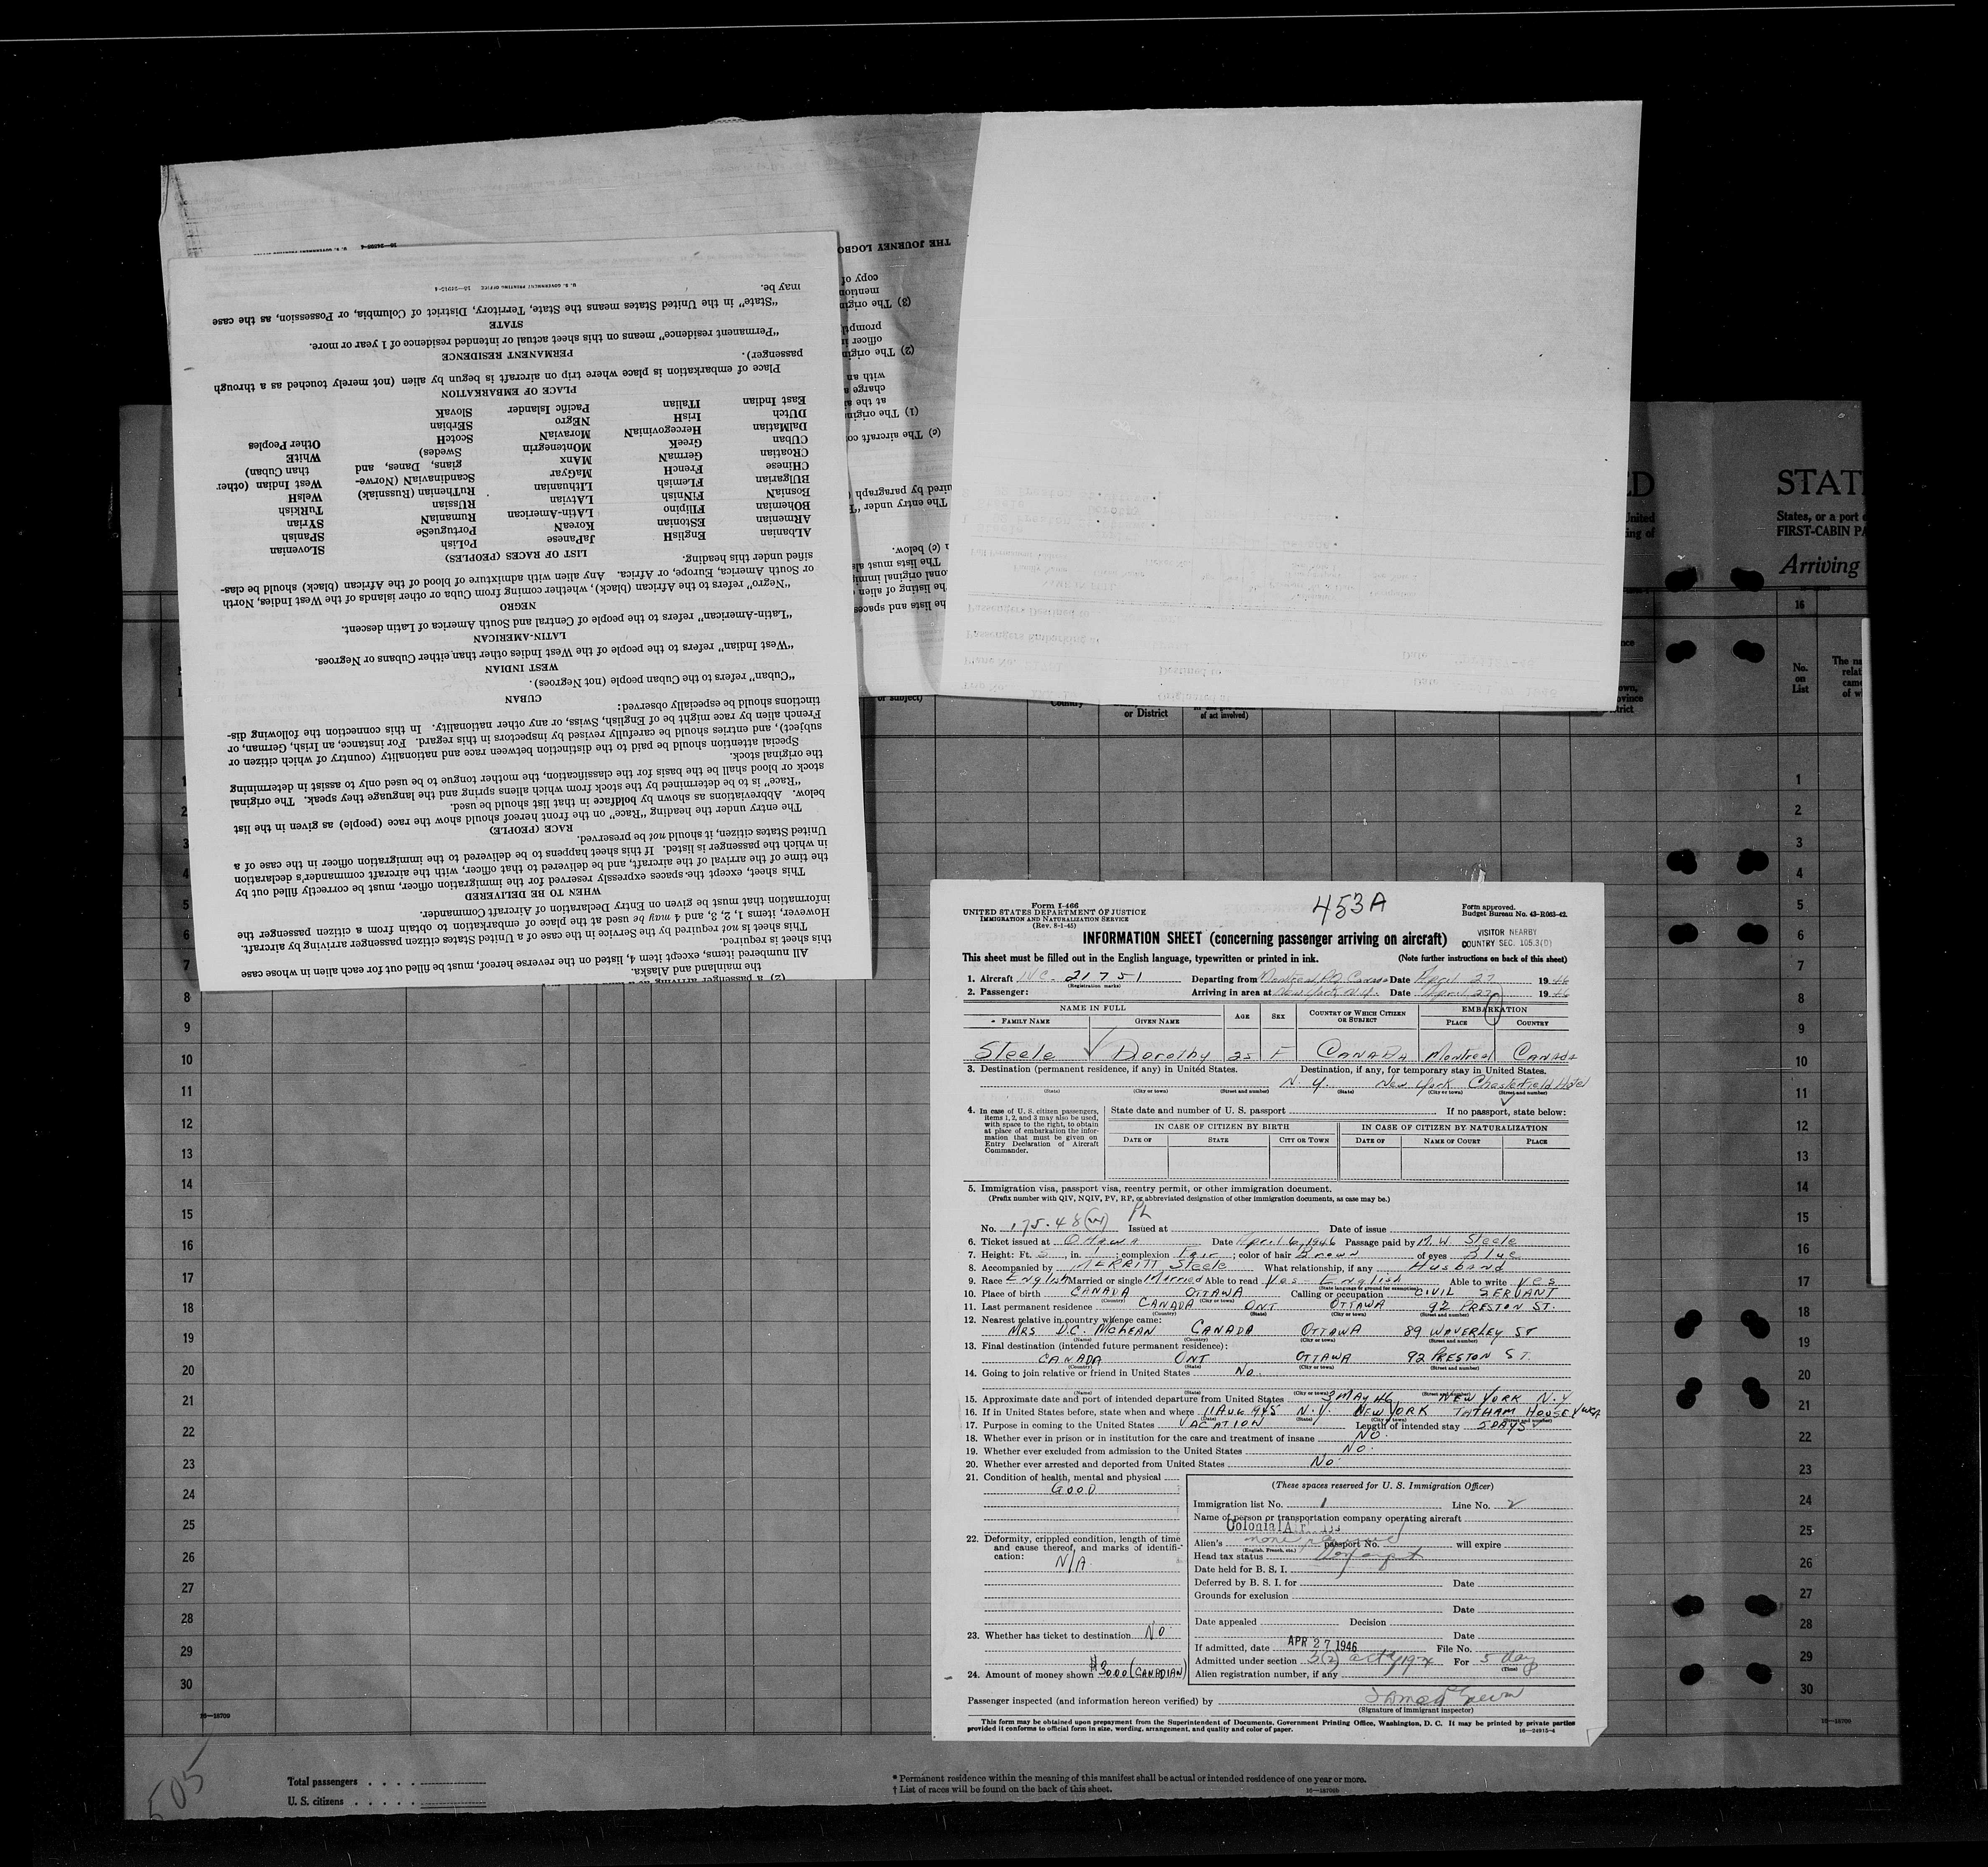 453A
Form I-466
UNITED STATES DEPARTMENT OF JUSTICE
IMMIGRATION AND NATURALIZATION SERVICE
(Rev. 8-1-45)
Form approved.
Budget Bureau No. 43-R063-42.
VISITOR NEARBY
COUNTRY SEC. 105.3(D)
INFORMATION SHEET (concerning passenger arriving on aircraft)
This sheet must be filled out in the English language, typewritten or printed in ink. (Note further instructions on back of this sheet)
1. Aircraft NC. 21751 Departing from Montreal Date April 27 1946
(Registration marks)
2. Passenger: Arriving in area at New York N.Y. Date April 27 1946
NAME IN FULL AGE SEX COUNTRY OF WHICH CITIZEN OR SUBJECT EMBARKATION
FAMILY NAME GIVEN NAME PLACE COUNTRY
Steele Dorothy 25 F CANADA Montreal Canada
3. Destination (permanent residence, if any) in United States. Destination, if any, for temporary stay in United States.
N.Y. New York Chesterfield Hotel
(State) (City or town) (Street and number) (State) (City or town) (Street and number)
4. In case of U. S. citizen passengers, items 1, 2, and 3 may also be used, with space to the right, to obtain at place of embarkation the information that must be given on Entry Declaration of Aircraft Commander.
State date and number of U. S. passport If no passport, state below:
IN CASE OF CITIZEN BY BIRTH IN CASE OF CITIZEN BY NATURALIZATION
DATE OF STATE CITY OR TOWN DATE OF NAME OF COURT PLACE
5. Immigration visa, passport visa, reentry permit, or other immigration document.
(Prefix number with QIV, NQIV, PV, RP, or abbreviated designation of other immigration documents, as case may be.)
No. 175.48 Issued at Date of issue
6. Ticket issued at Ottawa Date April 6, 1946 Passage paid by M. W. Steele
7. Height: Ft. 5, in. 1; complexion Fair; color of hair Brown of eyes Blue
8. Accompanied by MERRITT Steele What relationship, if any Husband
9. Race English Married or single Married Able to read Yes - English Able to write Yes
(State language or ground for exemption)
10. Place of birth CANADA OTTAWA Calling or occupation CIVIL SERVANT
(Country) (City or town)
11. Last permanent residence CANADA ONT OTTAWA 92 PRESTON ST.
(Country) (State) (City or town) (Street and number)
12. Nearest relative in country whence came:
MRS D.C. McLEAN CANADA OTTAWA 89 WAVERLEY ST
(Name) (Country) (City or town) (Street and number)
13. Final destination (intended future permanent residence):
CANADA ONT OTTAWA 92 PRESTON ST.
(Country) (State) (City or town) (Street and number)
14. Going to join relative or friend in United States No.
(Name) (State) (City or town) (Street and number)
15. Approximate date and port of intended departure from United States 3 MAY 46 NEW YORK N.Y.
16. If in United States before, state when and where 11 AUG 945 N.Y. NEW YORK TATHAM HOUSE YWCA
(Date) (State) (City or town) (Street and number)
17. Purpose in coming to the United States VACATION Length of intended stay 5 DAYS
18. Whether ever in prison or in institution for the care and treatment of insane NO.
19. Whether ever excluded from admission to the United States NO.
20. Whether ever arrested and deported from United States No.
21. Condition of health, mental and physical
GOOD
22. Deformity, crippled condition, length of time and cause thereof, and marks of identification:
N/A
23. Whether has ticket to destination No.
24. Amount of money shown $30.00 (CANADIAN)
(These spaces reserved for U. S. Immigration Officer)
Immigration list No. 1 Line No. 2
Name of person or transportation company operating aircraft
Colonial Air
Alien's none passport No. will expire
(English, French, etc.)
Head tax status Exempt
Date held for B. S. I.
Deferred by B. S. I. for Date
Grounds for exclusion
Date
Date appealed Decision
Date
If admitted, date APR 27 1946 File No.
Admitted under section 3(2) act 1924 For 5 day
(Time)
Alien registration number, if any
Passenger inspected (and information hereon verified) by
(Signature of immigrant inspector)
This form may be obtained upon prepayment from the Superintendent of Documents, Government Printing Office, Washington, D. C. It may be printed by private parties
provided it conforms to official form in size, wording, arrangement, and quality and color of paper. 16—24915-4
(2) a passenger arriving
the mainland and Alaska.
All numbered items, except item 4, listed on the reverse hereof, must be filled out for each alien in whose case
this sheet is required.
This sheet is not required by the Service in the case of a United States citizen passenger arriving by aircraft.
However, items 1, 2, 3, and 4 may be used at the place of embarkation to obtain from a citizen passenger the
information that must be given on Entry Declaration of Aircraft Commander.
WHEN TO BE DELIVERED
This sheet, except the spaces expressly reserved for the immigration officer, must be correctly filled out by
the time of the arrival of the aircraft, and be delivered to that officer, with the aircraft commander's declaration
in which the passenger is listed. If this sheet happens to be delivered to the immigration officer in the case of a
United States citizen, it should not be preserved.
RACE (PEOPLE)
The entry under the heading "Race" on the front hereof should show the race (people) as given in the list
below. Abbreviations as shown by boldface in that list should be used.
"Race" is to be determined by the stock from which aliens spring and the language they speak. The original
stock or blood shall be the basis for the classification, the mother tongue to be used only to assist in determining
the original stock.
Special attention should be paid to the distinction between race and nationality (country of which citizen or
subject), and entries should be carefully revised by inspectors in this regard. For instance, an Irish, German, or
French alien by race might be of English, Swiss, or any other nationality. In this connection the following dis-
tinctions should be especially observed:
CUBAN
"Cuban" refers to the Cuban people (not Negroes).
WEST INDIAN
"West Indian" refers to the people of the West Indies other than either Cubans or Negroes.
LATIN-AMERICAN
"Latin-American" refers to the people of Central and South America of Latin descent.
NEGRO
"Negro" refers to the African (black), whether coming from Cuba or other islands of the West Indies, North
or South America, Europe, or Africa. Any alien with admixture of blood of the African (black) should be clas-
sified under this heading.
LIST OF RACES (PEOPLES)
ALbanian ENglisH JaPanese PoLish SLovenian
ARmenian EStonian KoreaN PortugueSe SPanish
BOhemian FIlipino LAtin-American RumaniaN SYrian
BosniaN FiNnish LATvian RUSsian TuRkish
BUlgarian FLemish LIthuanian RuThenian (Russniak) WelsH
CHinese FrencH MaGyar ScandinaviaN (Norwe- West Indian (other
CRoatian GermaN MAnx gians, Danes, and than Cuban)
CUban GreeK MOntenegrin Swedes) WhitE
DalMatian HercegoviniaN MoraviaN ScotcH Other Peoples
DUtch IrisH NEgro SErbian
East Indian ITalian Pacific Islander SlovaK
PLACE OF EMBARKATION
Place of embarkation is place where trip on aircraft is begun by alien (not merely touched as a through
passenger).
PERMANENT RESIDENCE
"Permanent residence" means on this sheet actual or intended residence of 1 year or more.
STATE
"State" in the United States means the State, Territory, District of Columbia, or Possession, as the case
may be.
U. S. GOVERNMENT PRINTING OFFICE 16—24915-4
THE JOURNEY LOGBO
STAT
States, or a port
FIRST-CABIN PA
Arriving
16
No. on List
Total passengers
U. S. citizens
* Permanent residence within the meaning of this manifest shall be actual or intended residence of one year or more.
† List of races will be found on the back of this sheet.
505